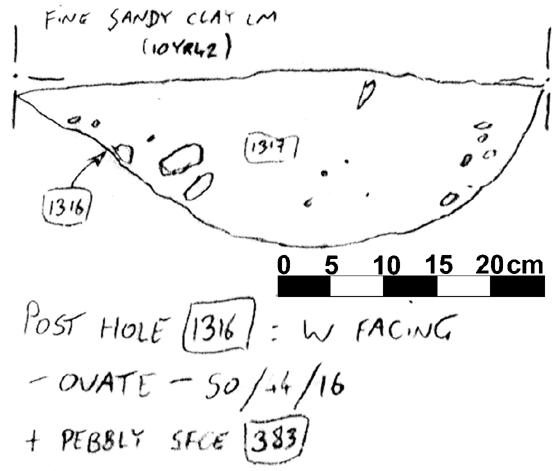 FINE SANDY CLAY LM
(10YR42)
1317
1316
0 5 10 15 20cm
POST HOLE 1316 : W FACING
- OVATE - 50/44/16
+ PEBBLY SFCE 383